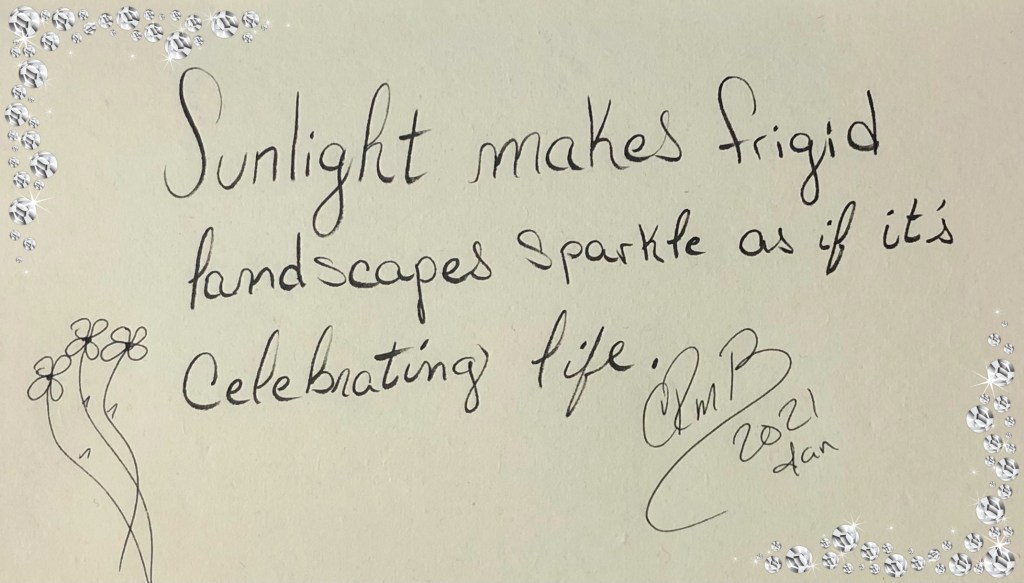 Sunlight makes frigid
landscapes sparkle as if it's
Celebrating life.
CPmB
2021
Jan